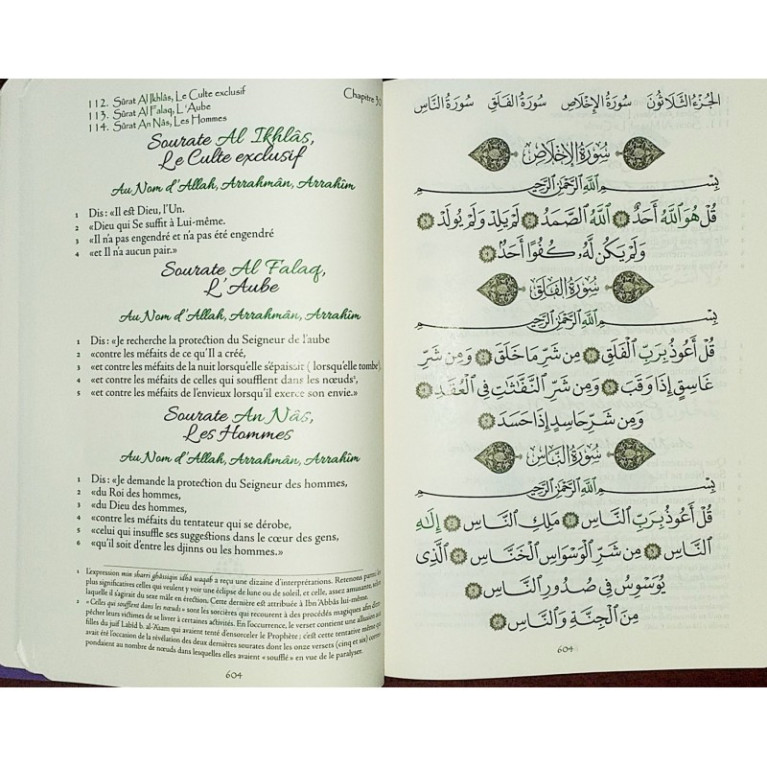 112. Sûrat Al Ikhlâs, Le Culte exclusif
113. Sûrat Al Falaq, L'Aube
114. Sûrat An Nâs, Les Hommes
Chapitre 30
Sourate Al Ikhlâs,
Le Culte exclusif
Au Nom d'Allah, Arrahmân, Arrahîm
1 Dis : «Il est Dieu, l'Un.
2 «Dieu qui Se suffit à Lui-même.
3 «Il n'a pas engendré et n'a pas été engendré
4 «et Il n'a aucun pair.»
Sourate Al Falaq,
L'Aube
Au Nom d'Allah, Arrahmân, Arrahîm
1 Dis : «Je recherche la protection du Seigneur de l'aube
2 «contre les méfaits de ce qu'Il a créé,
3 «et contre les méfaits de la nuit lorsqu'elle s'épaissit ( lorsqu'elle tombe¹).
4 «et contre les méfaits de celles qui soufflent dans les nœuds²,
5 «et contre les méfaits de l'envieux lorsqu'il exerce son envie.»
Sourate An Nâs,
Les Hommes
Au Nom d'Allah, Arrahmân, Arrahîm
1 Dis : «Je demande la protection du Seigneur des hommes,
2 «du Roi des hommes,
3 «du Dieu des hommes,
4 «contre les méfaits du tentateur qui se dérobe,
5 «celui qui insuffle ses suggestions dans le cœur des gens,
6 «qu'il soit d'entre les djinns ou les hommes.»
1 L'expression min sharri ghâsiqin idhâ waqab a reçu une dizaine d'interprétations. Retenons parmi les
plus significatives celles qui veulent y voir une éclipse de lune ou de soleil, et celle, assez amusante, selon
laquelle il s'agirait du sexe mâle en érection. Cette dernière est attribuée à Ibn 'Abbâs lui-même.
2 « Celles qui soufflent dans les nœuds » sont les sorcières qui recourent à des procédés magiques afin d'em-
pêcher leurs victimes de se livrer à certaines activités. En l'occurrence, le verset contient une allusion aux
filles du juif Labîd b. al-'Asam qui avaient tenté d'ensorceler le Prophète ; c'est cette tentative même qui
avait été l'occasion de la révélation des deux dernières sourates dont les onze versets (cinq et six) corres-
pondaient au nombre de nœuds dans lesquelles elles avaient « soufflé » en vue de le paralyser.
604
الجُزْءُ الثَّلَاثُونَ سُورَةُ الإِخْلَاصِ سُورَةُ الفَلَقِ سُورَةُ النَّاسِ
سُورَةُ الإِخْلَاصِ
بِسْمِ ٱللَّهِ ٱلرَّحْمَٰنِ ٱلرَّحِيمِ
قُلْ هُوَ ٱللَّهُ أَحَدٌ ۝١ ٱللَّهُ ٱلصَّمَدُ ۝٢ لَمْ يَلِدْ وَلَمْ يُولَدْ ۝٣
وَلَمْ يَكُن لَّهُۥ كُفُوًا أَحَدٌۢ ۝٤
سُورَةُ الفَلَقِ
بِسْمِ ٱللَّهِ ٱلرَّحْمَٰنِ ٱلرَّحِيمِ
قُلْ أَعُوذُ بِرَبِّ ٱلْفَلَقِ ۝١ مِن شَرِّ مَا خَلَقَ ۝٢ وَمِن شَرِّ
غَاسِقٍ إِذَا وَقَبَ ۝٣ وَمِن شَرِّ ٱلنَّفَّٰثَٰتِ فِى ٱلْعُقَدِ ۝٤
وَمِن شَرِّ حَاسِدٍ إِذَا حَسَدَ ۝٥
سُورَةُ النَّاسِ
بِسْمِ ٱللَّهِ ٱلرَّحْمَٰنِ ٱلرَّحِيمِ
قُلْ أَعُوذُ بِرَبِّ ٱلنَّاسِ ۝١ مَلِكِ ٱلنَّاسِ ۝٢ إِلَٰهِ
ٱلنَّاسِ ۝٣ مِن شَرِّ ٱلْوَسْوَاسِ ٱلْخَنَّاسِ ۝٤ ٱلَّذِى
يُوَسْوِسُ فِى صُدُورِ ٱلنَّاسِ ۝٥
مِنَ ٱلْجِنَّةِ وَٱلنَّاسِ ۝٦
604